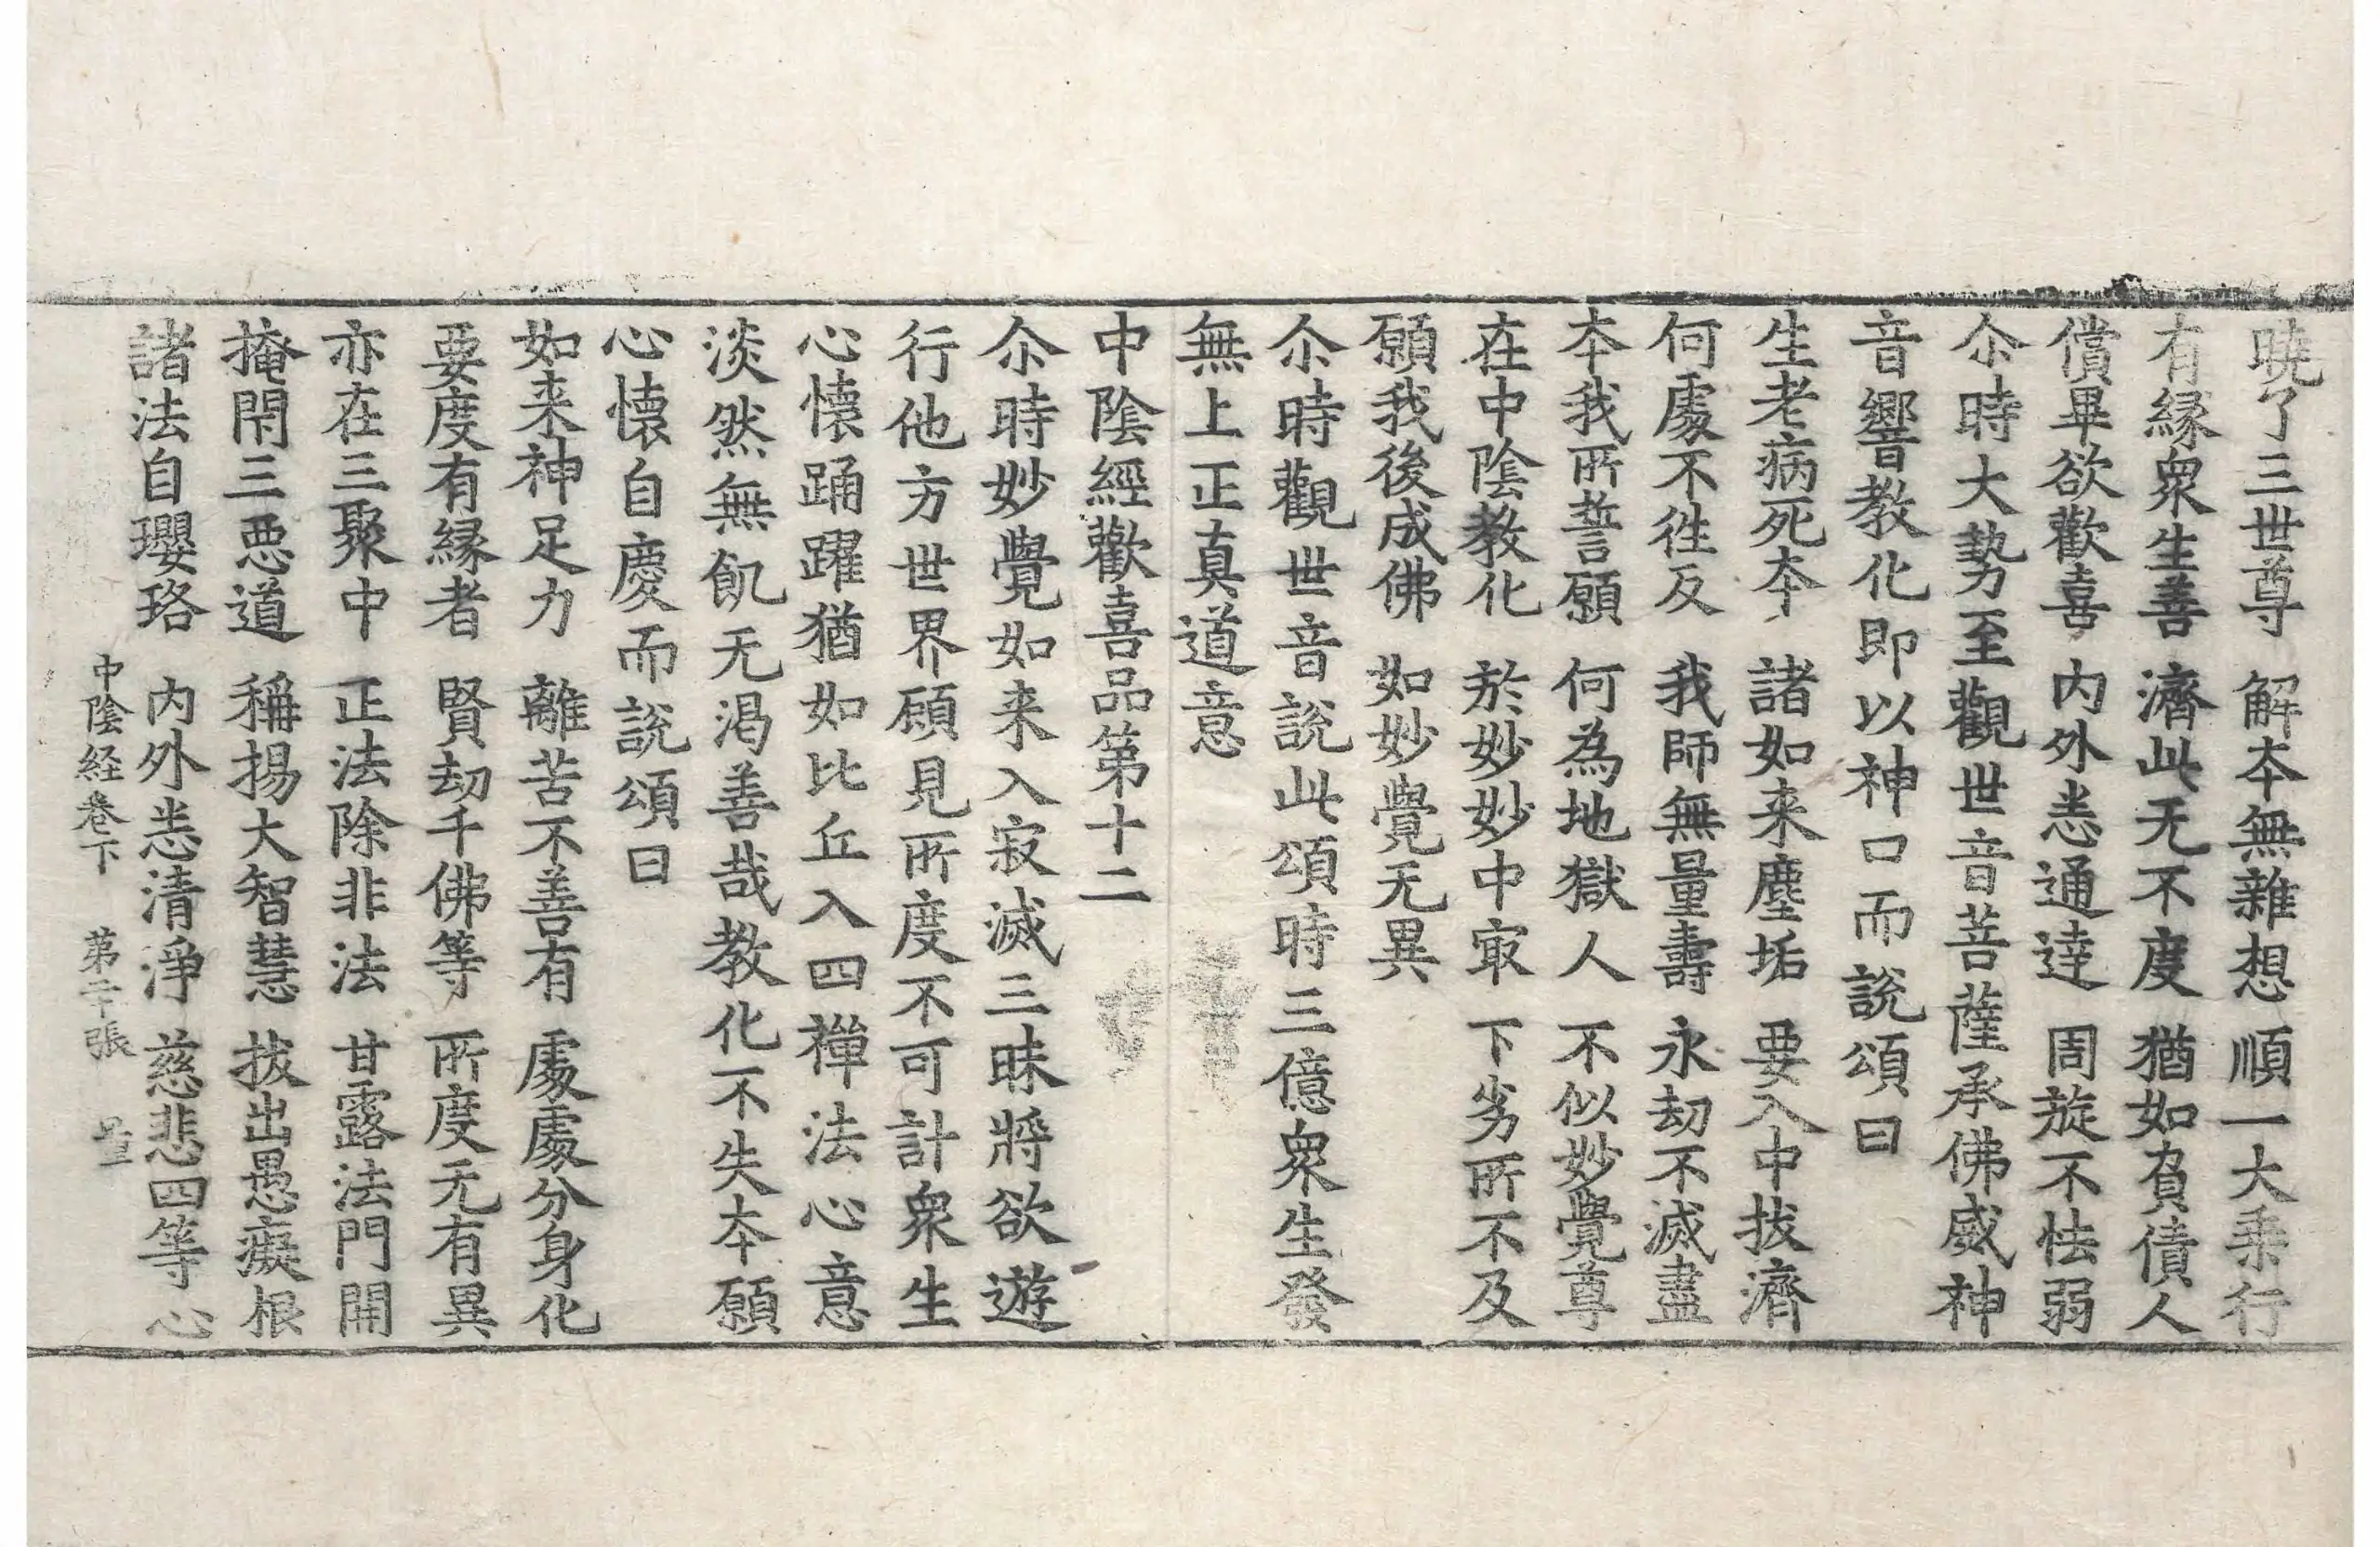 曉了三世尊　解夲無雜想　順一大乗行
有縁衆生善　濟此无不度　猶如負債人
償畢欲歡喜　内外恙通達　周旋不怯弱
尒時大勢至觀世音菩薩承佛威神
音響教化即以神口而說頌曰
生老病死夲　諸如来塵垢　要入中拔濟
何處不徃反　我師無量壽　永劫不滅盡
夲我所誓願　何為地獄人　不似妙覺尊
在中陰教化　於妙妙中㝡　下劣所不及
願我後成佛　如妙覺无異
尒時觀世音說此頌時三億衆生發
無上正真道意
中陰經歡喜品第十二
尒時妙覺如来入寂滅三昧將欲遊
行他方世界頋見所度不可計衆生
心懷踊躍猶如比丘入四禪法心意
淡然無飢无渇善哉教化不失夲願
心懷自慶而說頌曰
如来神足力　離苦不善有　處處分身化
要度有縁者　賢劫千佛等　所度无有異
亦在三聚中　正法除非法　甘露法門開
掩閇三恶道　稱揚大智慧　拔出愚癡根
諸法自瓔珞　内外恙清淨　慈悲四等心
中陰经卷下　第二十張　量